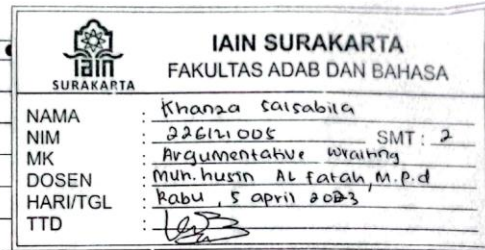 iain
SURAKARTA
IAIN SURAKARTA
FAKULTAS ADAB DAN BAHASA
NAMA : Khanza Salsabila
NIM : 226121005 SMT : 2
MK : Argumentative wraiting
DOSEN : Muh. husin AL fatah, M.p.d
HARI/TGL : Rabu, 5 april 2023
TTD :